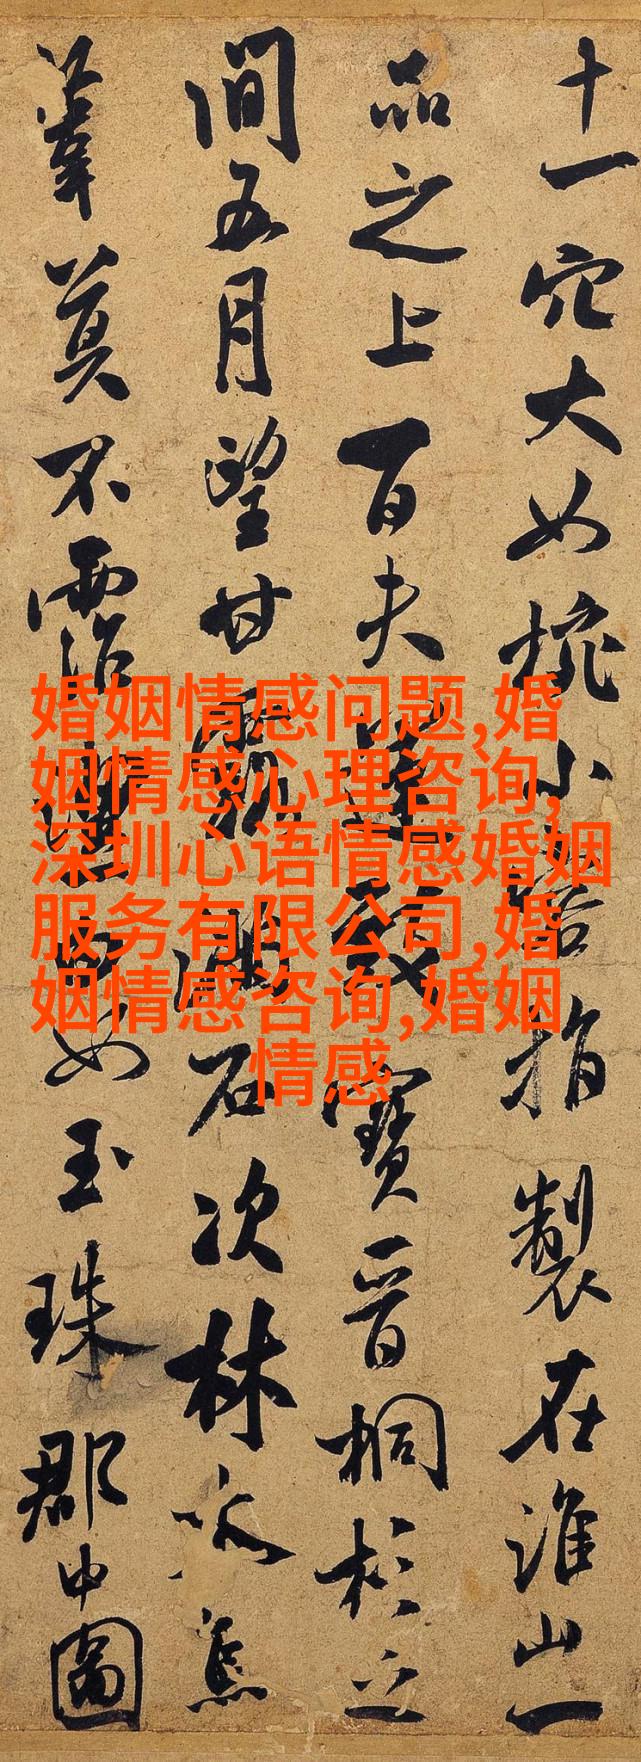 十一穴大如椀小容指製在淮山一
品之上百夫運致寶晉桐杉之
間五月望甘露滿石次林木焦
葦莫不霑潔白如玉珠郡中圖
婚姻情感问题,婚
姻情感心理咨询,
深圳心语情感婚姻
服务有限公司,婚
姻情感咨询,婚姻
情感